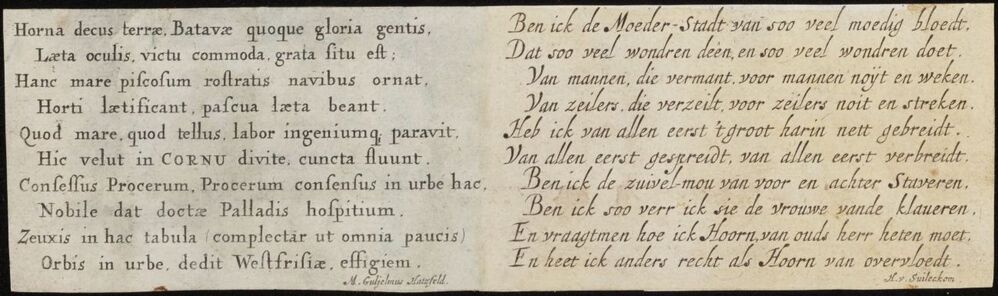 Horna decus terræ, Batavæ quoque gloria gentis,
Læta oculis, victu commoda, grata ſitu eſt;
Hanc mare piſcoſum roſtratis navibus ornat,
Horti lætificant, paſcua læta beant.
Quod mare, quod tellus, labor ingeniumq; paravit,
Hic velut in CORNU divite, cuncta fluunt.
Conſeſſus Procerum, Procerum conſenſus in urbe hac,
Nobile dat doctæ Palladis hoſpitium.
Zeuxis in hac tabula (complectar ut omnia paucis)
Orbis in urbe, dedit Weſtfriſiæ, effigiem.
M. Guljelmus Hatzfeld.
Ben ick de Moeder-Stadt van soo veel moedig bloedt,
Dat soo veel wondren déen, en soo veel wondren doet.
Van mannen, die vermant, voor mannen noÿt en weken.
Van zeilers, die verzeilt, voor zeilers noit en streken.
Heb ick van allen eerst 't groot harin nett gebreidt.
Van allen eerst gespreidt, van allen eerst verbreidt.
Ben ick de zuivel-mou van voor en achter Staveren.
Ben ick soo verr ick sie de vrouwe vande klaueren.
En vraagtmen hoe ick Hoorn, van ouds herr heten moet.
En heet ick anders recht als Hoorn van overvloedt.
H. v. Suileckom